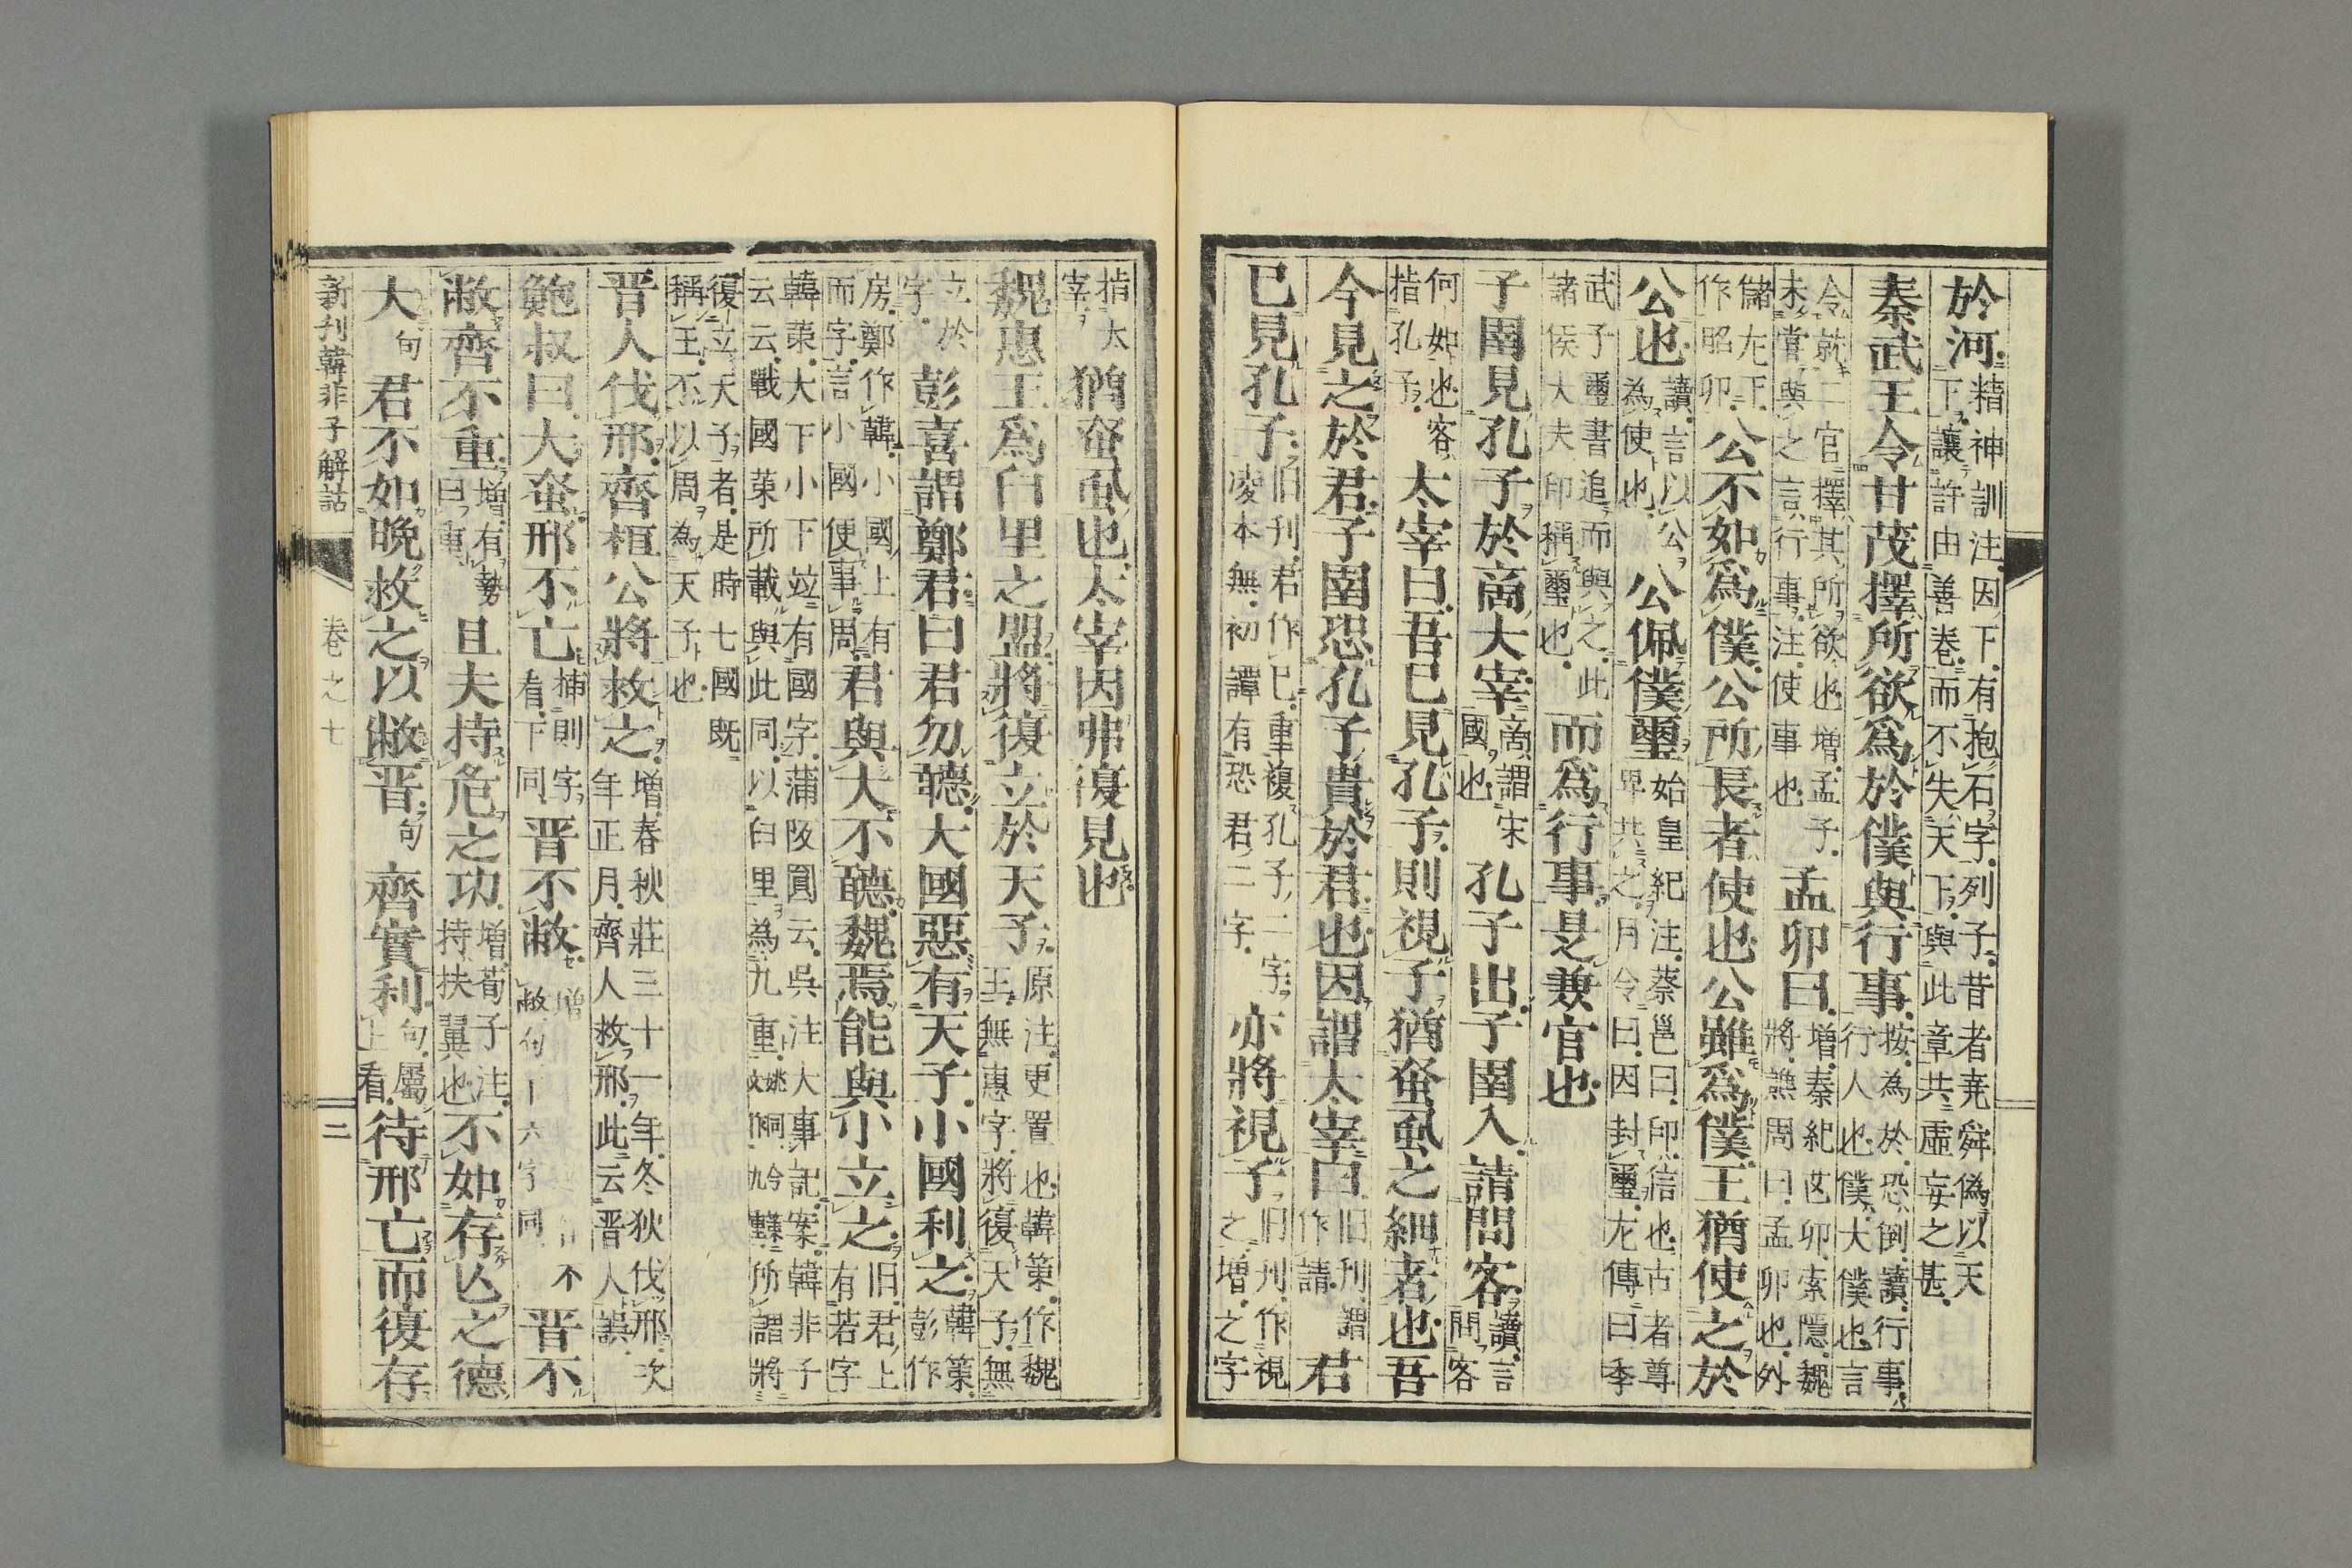 於河。精神訓注。因下。有抱石字。列子。昔者尭舜偽以天
下。讓許由善卷。而不失天下。與此章共虛妄之甚。
秦武王令甘茂擇所欲爲於僕與行事。按。為於。恐倒。讀。行事。
行人也。僕。大僕也。言
令就二官擇其所欲也。增。孟子。
未嘗與之言行事。注。使事也。
孟卯曰。增。秦紀芒卯。索隱。魏
將。譙周曰。孟卯也。外
儲左下。
作昭卯。
公不如爲僕。公所長者。使也。公雖爲僕。王猶使之於
公也。讀。言以公
為使也。
公佩僕璽始皇紀注。蔡邕曰。印。信也。古者尊
卑共之。月令曰。因封璽。左傳曰季
武子璽書追而與之。此
諸侯大夫印稱璽也。
而爲行事。是兼官也。
子圉見孔子於商大宰。商謂宋
國也。
孔子出。子圉入。請問客。讀。言
問客
何如也。客。
指孔子。
太宰曰。吾已見孔子。則視子猶蚤虱之細者也。吾
今見之於君。子圉恐孔子貴於君也。因謂太宰曰。旧刊。謂
作請。
君
已見孔子。旧刊。君作已。重複孔子二字。
凌本無。初譚有恐君二字。
亦將視子。旧刊。作視
之。增。之字
指大
宰。
猶蚤虱也。大宰因弗復見也。
魏惠王爲臼里之盟。將復立於天子。原注。更置也。韓策。作魏
王。無惠字。將復天子。無
立於
字。
彭喜謂鄭君曰。君勿聽。大國惡有天子。小國利之。韓策。
彭作
房。鄭作韓。小國上有
而字。言小國便事周。
君與大不聽。魏焉能與小立之。旧。君上
有若字
韓策。大下小下竝有國字。蒲阪圓云。吳注大事記。案。韓非子
云云。戰國策所載與此同。以臼里為九重。姚
所謂將
復立天子者。是時七國既
稱王。不以周為天子也。
晋人伐邢。齊桓公將救之。增。春秋莊三十一年。冬。狄伐邢。次
年正月。齊人救邢。此云晋人誤。
鮑叔曰。大蚤。邢不亡。補則字。
看下同。
晋不敝。增
敝 六字同
晋不
敝。齊不重。增。有勢
曰。事。
且夫持危之功。增。荀子注。
持扶翼也。
不如存亾之德
大。句君不如晚救之以敝晋。句齊實利。句。屬
上看。
待邢亡而復存
新刊韓非子解詁
卷之七
二